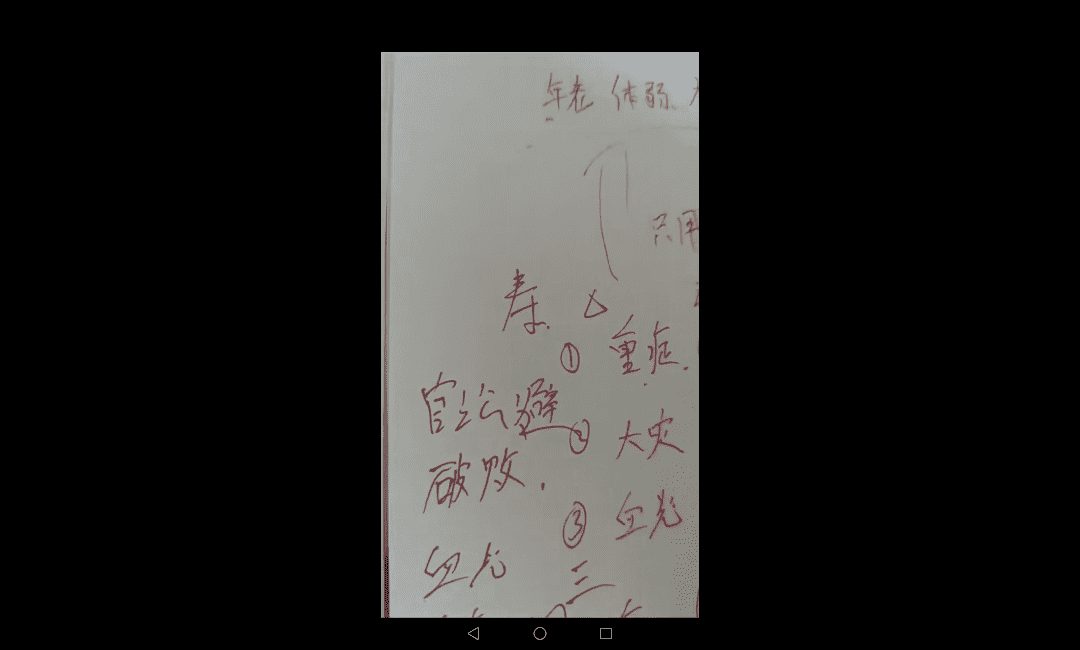 年老 体弱
只用
寿
① 重症.
官讼避
② 大灾
破败.
③ 血光
血光
三